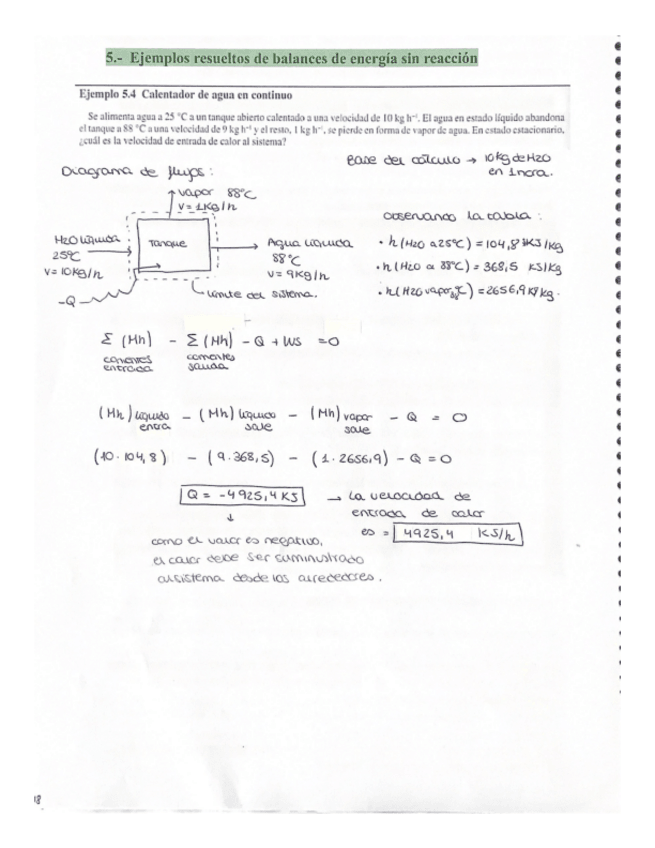 5.- Ejemplos resueltos de balances de energía sin reacción
Ejemplo 5.4 Calentador de agua en continuo
Se alimenta agua a 25 °C a un tanque abierto calentado a una velocidad de 10 kg h⁻¹. El agua en estado líquido abandona
el tanque a 88 °C a una velocidad de 9 kg h⁻¹ y el resto, 1 kg h⁻¹, se pierde en forma de vapor de agua. En estado estacionario,
¿cuál es la velocidad de entrada de calor al sistema?
Diagrama de flujos:
Base del cálculo → 10 kg de H2O
en 1 hora.
vapor 88°C
V = 1Kg/h
observando la tabla:
H2O líquida
25°C
V = 10Kg/h
Tanque
Agua líquida
88°C
V = 9Kg/h
-Q
Límite del sistema.
• h (H2O a 25°C) = 104,8 KJ/Kg
• h (H2O a 88°C) = 368,5 KJ/Kg
• h (H2O vapor) = 2656,9 KJ/Kg.
Σ (Mh) - Σ (Mh) - Q + Ws = 0
corrientes entrada corrientes salida
(Mh) líquido entra - (Mh) líquido sale - (Mh) vapor sale - Q = 0
(10 · 104,8) - (9 · 368,5) - (1 · 2656,9) - Q = 0
Q = -4925,4 KJ → La velocidad de
entrada de calor
es = 4925,4 KJ/h
↓
como el valor es negativo,
el calor debe ser suministrado
al sistema desde los alrededores.
18